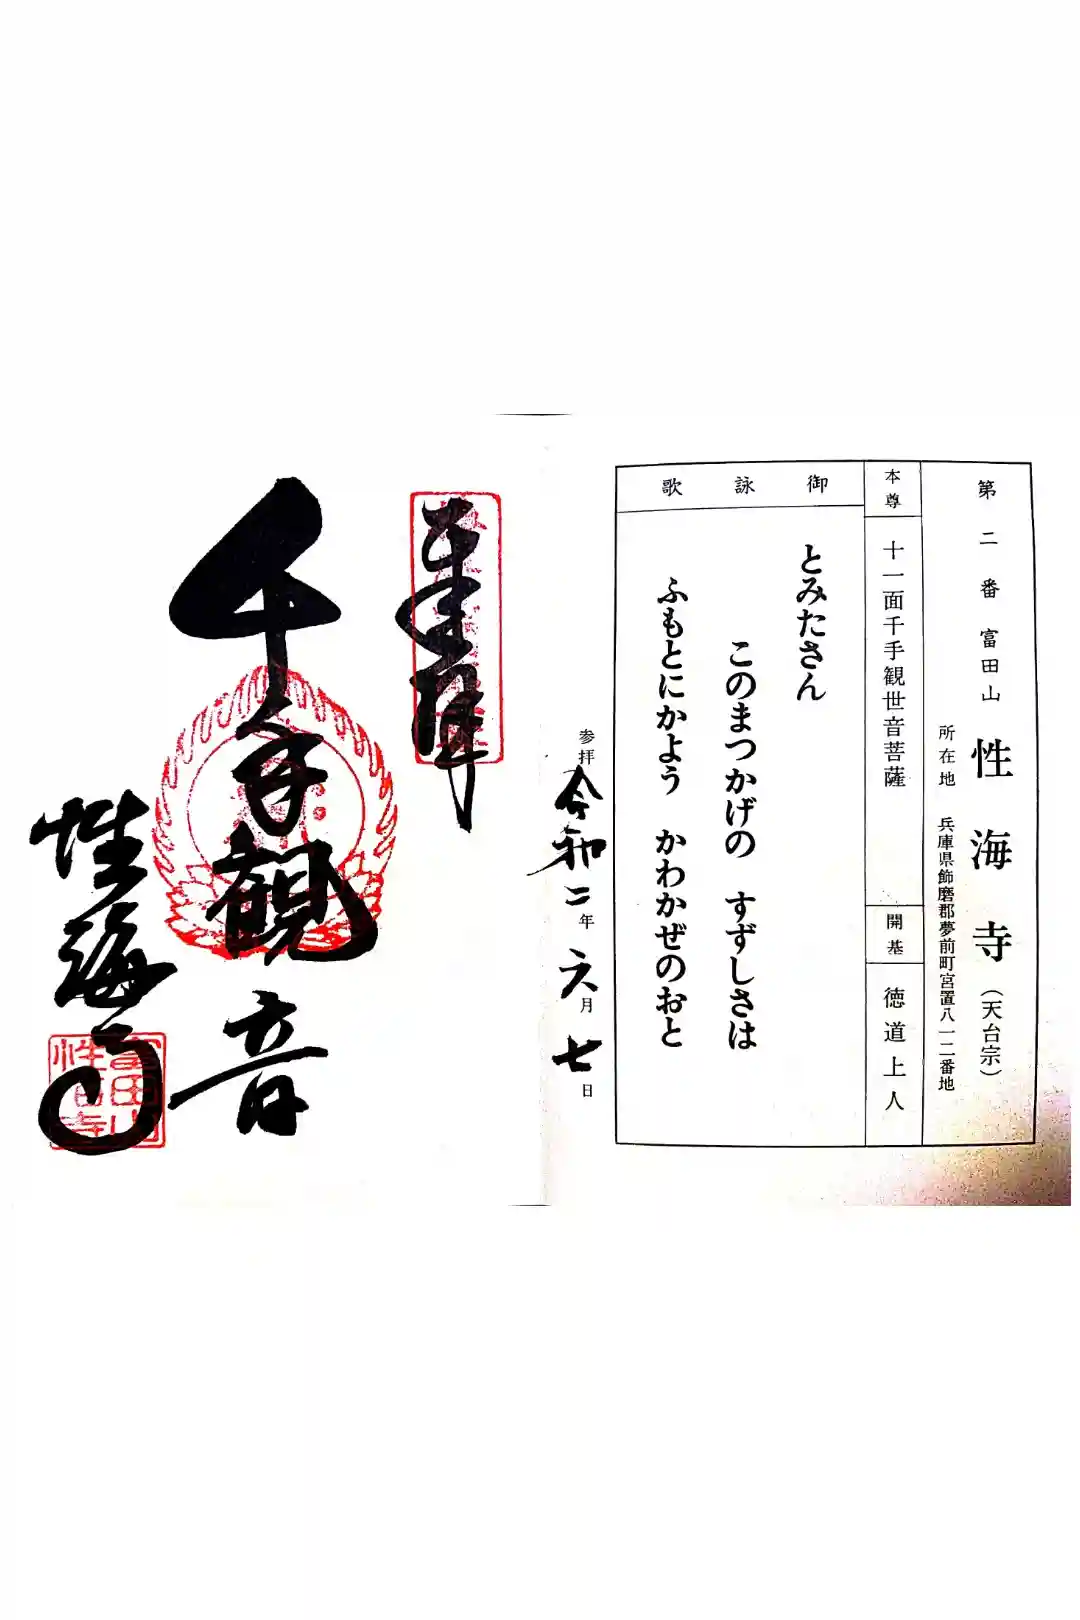 第二番 富田山 性海寺（天台宗）
所在地 兵庫県飾磨郡夢前町宮置八一二番地
本尊
十一面千手観世音菩薩
開基
徳道上人
御詠歌
とみたさん
このまつかげの すずしさは
ふもとにかよう かわかぜのおと
参拝 令和二年 六月七日
奉拝
千手観音
性海寺
富田山
性海寺